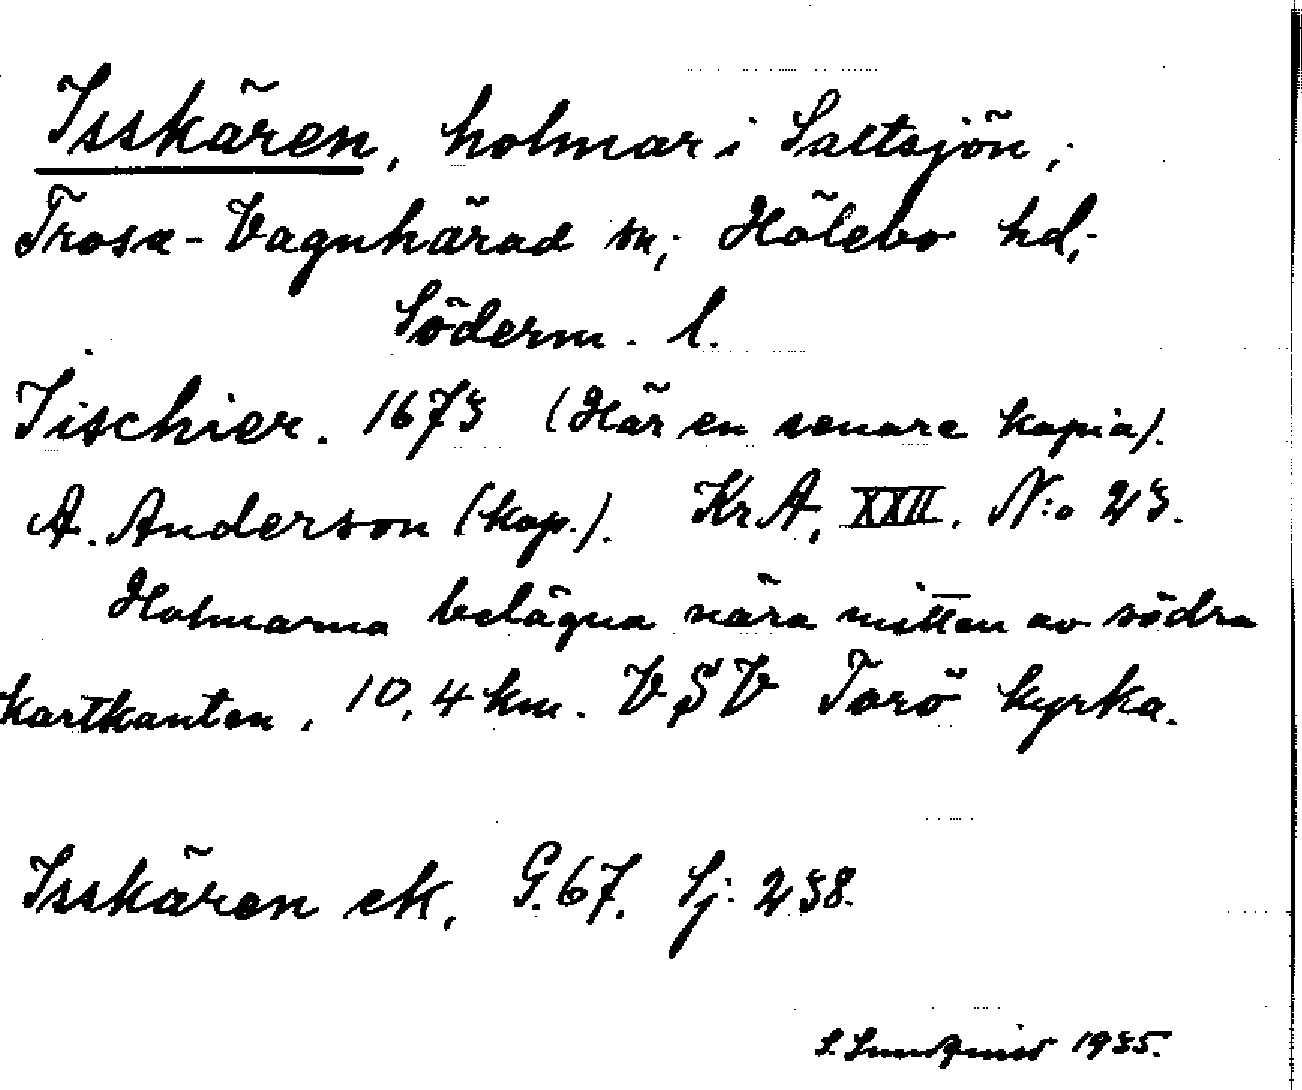 Isskären, holmar i Saltsjön,
Trosa-Vagnhärad sn, Hölebo hd,
Söderm. l.
Tischier. 1673 (Här en senare kopia).
A. Anderson (kop.). KrA, XXII. N:o 23.
Holmarna belägna nära mitten av södra
kartkanten, 10,4 km. VSV Torö kyrka.
Isskären ek, G.67. Sj: 238.
S. Lundquist 1935.